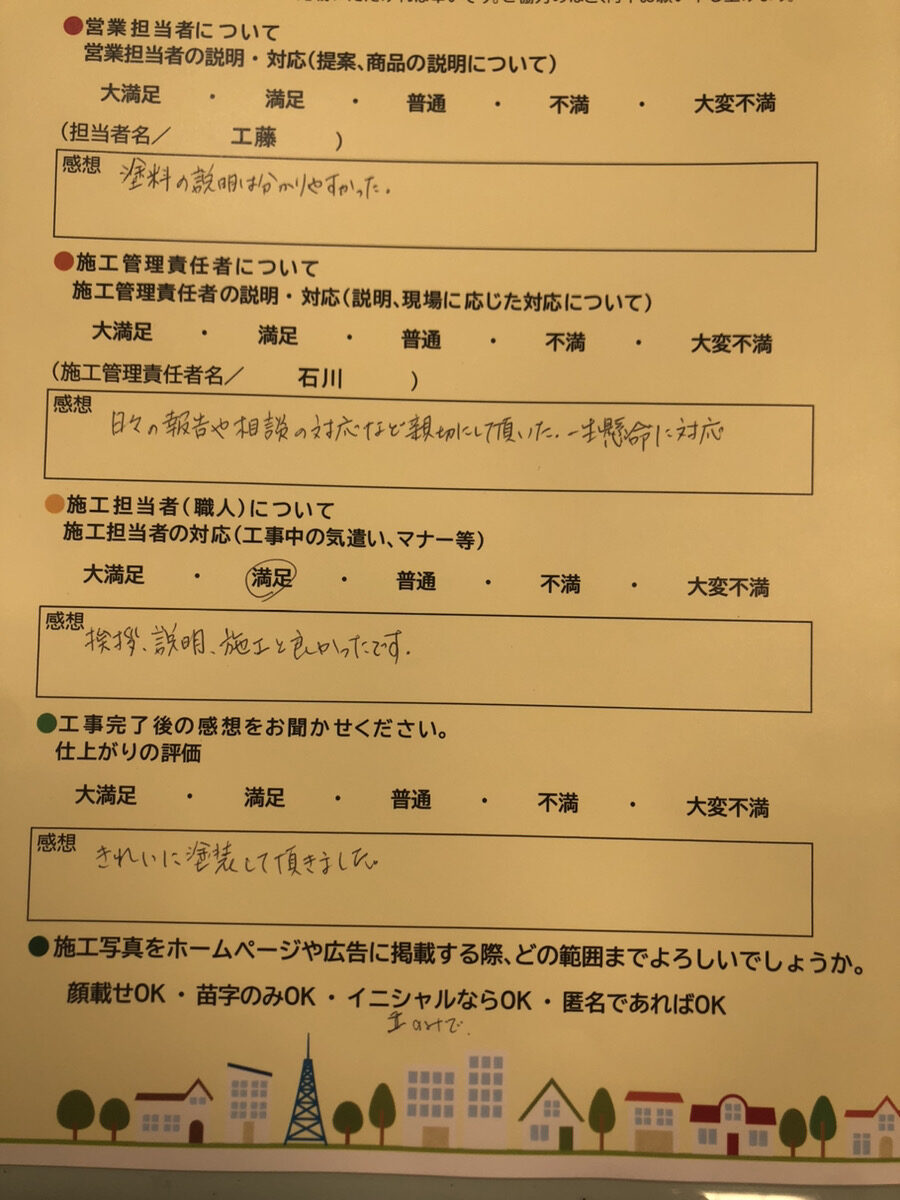 ●営業担当者について
営業担当者の説明・対応(提案、商品の説明について)
大満足 ・ 満足 ・ 普通 ・ 不満 ・ 大変不満
(担当者名/ 工藤 )
感想 塗料の説明は分かりやすかった。
●施工管理責任者について
施工管理責任者の説明・対応(説明、現場に応じた対応について)
大満足 ・ 満足 ・ 普通 ・ 不満 ・ 大変不満
(施工管理責任者名/ 石川 )
感想 日々の報告や相談の対応など親切にして頂いた。一生懸命に対応
●施工担当者(職人)について
施工担当者の対応(工事中の気遣い、マナー等)
大満足 ・ 満足 ・ 普通 ・ 不満 ・ 大変不満
感想 挨拶、説明、施工と良かったです。
●工事完了後の感想をお聞かせください。
仕上がりの評価
大満足 ・ 満足 ・ 普通 ・ 不満 ・ 大変不満
感想 きれいに塗装して頂きました。
●施工写真をホームページや広告に掲載する際、どの範囲までよろしいでしょうか。
顔載せOK・苗字のみOK・イニシャルならOK・匿名であればOK